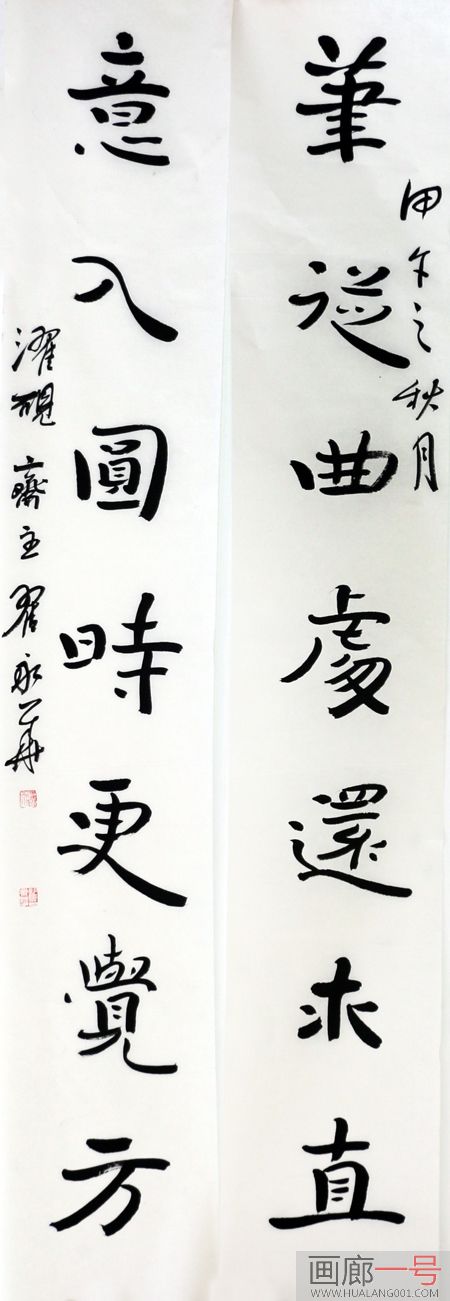 筆從曲處還求直
甲午之秋月
意入圓時更覺方
濯硯齋主翟永華
画廊一号
WWW.HUALANG001.COM